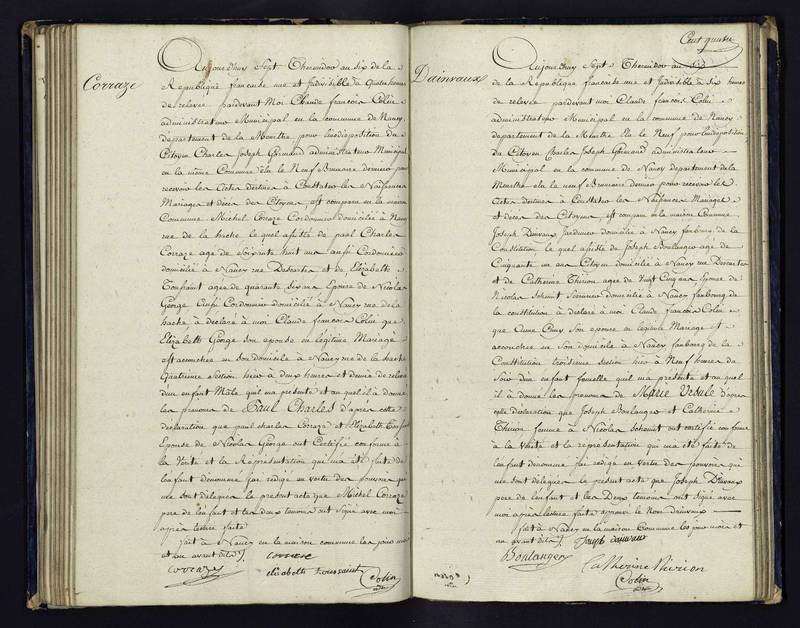 Corraze
Aujourdhuy Sept Thermidor an six de la
République francaise une et Indivisible à quatre heures
de relevée pardevant Moi Claude francois Colin
administrateur Municipal en la commune de Nancy
département de la Meurthe pour lindisposition du
Citoyen Charles Joseph Grimaud administrateur Municipal
en la même Commune élu le Neuf Brumaire dernier pour
recevoir les Actes destinés à Constater les Naissances
Mariages et décès des Citoyens, est comparu en la maison
Commune Michel Corraze Cordonnier domicilié à Nancy
rue de la hache lequel assisté de paul Charles
Corraze agé de soixante huit ans aussi Cordonnier
domicilié à Nancy rue Descartes et de Elizabeth
Toussaint agée de quarante six ans Epouse de Nicolas
George aussi Cordonnier domicilié à Nancy rue de la
hache à déclaré à moi Claude francois Colin que
Elizabeth George son epouse en légitime Mariage
est accouchée en son domicile à Nancy rue de la hache
quatrieme section hier à deux heures et demie de relevée
dun enfant Mâle quil ma présenté et auquel il à donné
les prenoms de Paul Charles d'après cette
declaration que paul charles Corraze et Elizabeth Toussaint
Epouse de Nicolas George ont Certifié conforme à
la Vérité et la Représentation qui ma été faite de
lenfant denommé jai redigé en vertu des pouvoirs qui
me sont délégués le present acte que Michel Corraze
pere de lenfant et les deux temoins ont signé avec moi
après lecture faite
fait à Nancy en la maison commune les jour mois
et an avant dits
corraze
corraze
elisabeth toussaint
Colin
Cent quatre
Dainvaux
Aujourdhuy Sept Thermidor an six
de la République francaise une et indivisible à six heures
de relevée pardevant moi Claude francois Colin
administrateur Municipal en la commune de Nancy
departement de la Meurthe pour lindisposition
du Citoyen Charles Joseph Grimaud administrateur
Municipal en la commune de Nancy departement de la
Meurthe elu le neuf Brumaire dernier pour recevoir les
Actes destinés à Constater les Naissances Mariages
et décès des Citoyens, est comparu en la maison Commune
Joseph Dainvaux Jardinier domicilié à Nancy faubourg de la
Constitution lequel assisté de Joseph Boulanger agé de
Cinquante un ans Citoyen domicilié à Nancy rue Descartes
et de Catherine Thirion agée de Vingt Cinq ans épouse de
Nicolas domicilié à Nancy faubourg de
la constitution à déclaré à moi Claude francois Colin
que son epouse en légitime Mariage est
accouchée en son domicile à Nancy faubourg de la
Constitution troisieme section hier à Neuf heures du
Soir d'un enfant femelle quil ma présenté et auquel
il à donné les prenoms de Marie Ursule d'après
cette déclaration que Joseph Boulanger et Catherine
Thirion femme à Nicolas ont certifié conforme
à la Vérité et la représentation qui ma été faite de
lenfant denommé jai redigé en vertu des pouvoirs qui
me sont délégués le present acte que Joseph Dainvaux
pere de lenfant et les Deux temoins ont signé avec
moi après lecture faite approuvé le Nom Dainvaux
fait à Nancy en la maison Commune les jour mois et
an avant dits
Joseph dainvaux
Boulanger
Catherine thirion
Colin